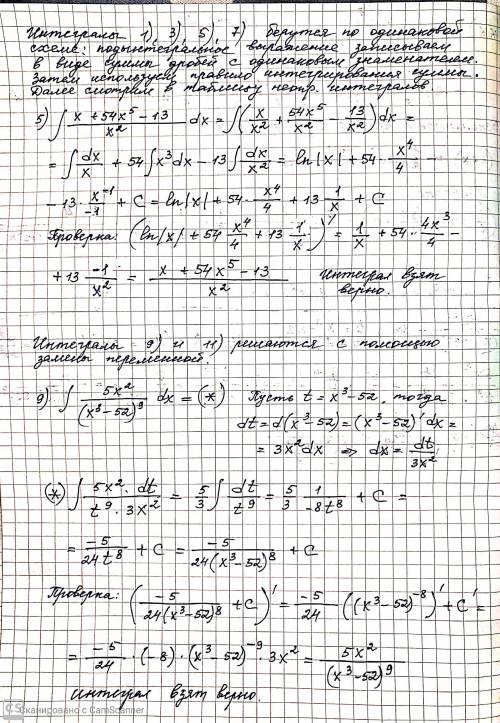 Интегралы 1) 3) 5) 7) берутся по одинаковой
схеме: подынтегральное выражение записываем
в виде суммы дробей с одинаковым знаменателем.
Затем используем правило интегрирования суммы.
Далее смотрим в таблицу неопр. интегралов
5) ∫ (x + 54x⁵ - 13)/x² dx = ∫ (x/x² + 54x⁵/x² - 13/x²) dx =
= ∫ dx/x + 54 ∫ x³dx - 13 ∫ dx/x² = ln|x| + 54 · x⁴/4 -
- 13 · x⁻¹/-1 + C = ln|x| + 54 · x⁴/4 + 13 · 1/x + C
Проверка: (ln|x| + 54 x⁴/4 + 13 1/x)' = 1/x + 54 · 4x³/4 -
+ 13 -1/x² = (x + 54x⁵ - 13)/x² Интеграл взят
верно.
Интегралы 9) и 11) решаются с помощью
замены переменной.
9) ∫ 5x²/(x³-52)⁹ dx = (*) Пусть t = x³-52, тогда
dt = d(x³-52) = (x³-52)' dx =
= 3x²dx ⇒ dx = dt/3x²
(*) ∫ 5x² · dt/t⁹ · 3x² = 5/3 ∫ dt/t⁹ = 5/3 1/-8t⁸ + C =
= -5/24t⁸ + C = -5/24(x³-52)⁸ + C
Проверка: (-5/24(x³-52)⁸ + C)' = -5/24 ((x³-52)⁻⁸)' + C' =
= -5/24 · (-8) · (x³-52)⁻⁹ · 3x² = 5x²/(x³-52)⁹
интеграл взят верно.
CS Сканировано с CamScanner